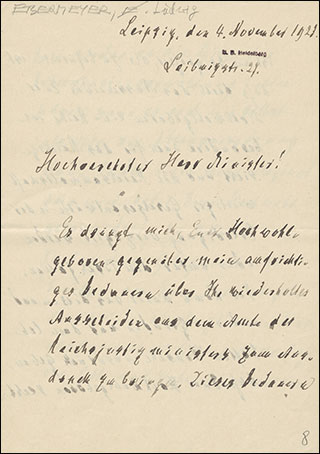 EBERMEYER, L. Ludwig
Leipzig, den 4. November 1921.
U. B. Heidelberg
Leibnizstr. 27.
Hochverehrter Herr Minister!
Es drängt mich, Euer Hochwohl-
geboren gegenüber mein aufrichti-
ges Bedauern über Ihr wiederholtes
Ausscheiden aus dem Amte des
Reichsjustizministers zum Aus-
druck zu bringen. Dieses Bedauern
8